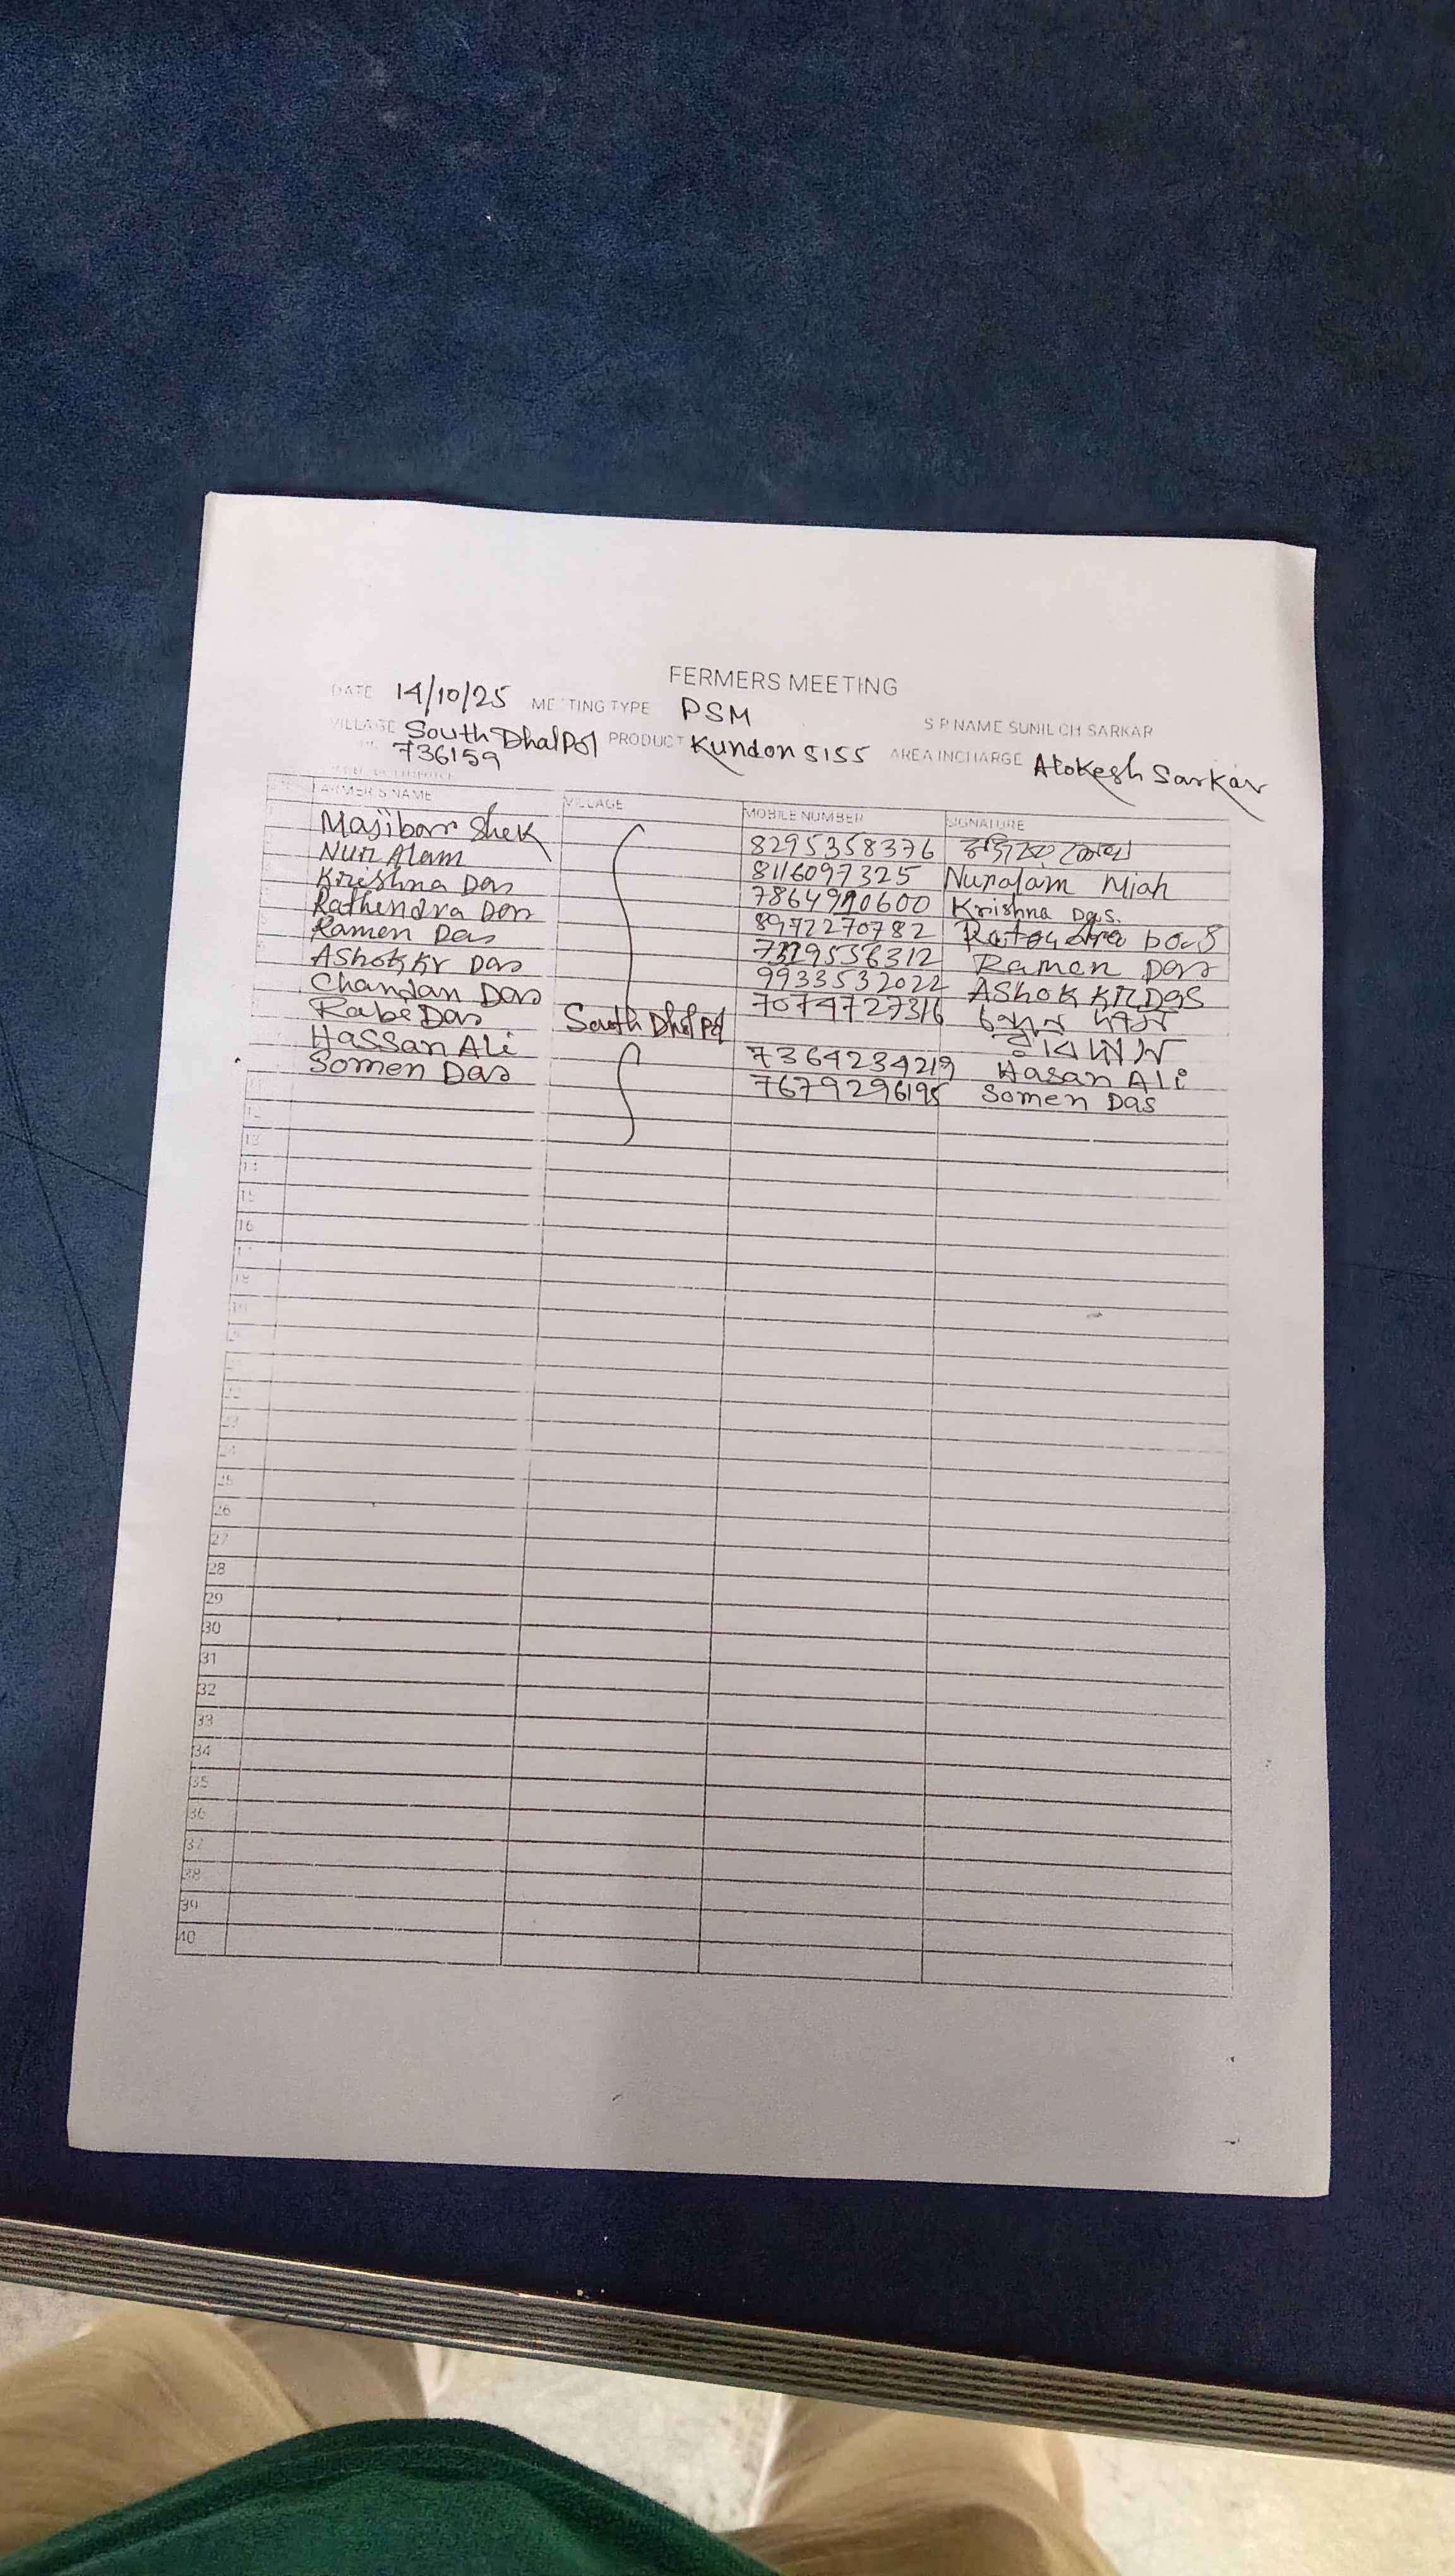 FERMERS MEETING
DATE 14/10/25 MEETING TYPE PSM S P NAME SUNIL CH SARKAR
VILLAGE South Dhalpol PRODUCT Kundon 8155 AREA INCHARGE Alokesh Sarkar
736159
FARMER'S NAME VILLAGE MOBILE NUMBER SIGNATURE
Majibar Shek 8295358376
Nur Alam 8116097325 Nuralam Miah
Krishna Das 7864910600 Krishna Das.
Rathendra Das 8972270782
Ramen Das 7329556312 Ramen Das
Ashok kr Das 9933532022 AShok KR DaS
Chandan Das 7074727316 চন্দন দাস
Rabe Das South Dhalpol রবি দাস
Hassan Ali 7364234219 Hasan Ali
Somen Das 7679296195 Somen Das
11
12
13
14
15
16
17
18
19
20
21
22
23
24
25
26
27
28
29
30
31
32
33
34
35
36
37
38
39
40